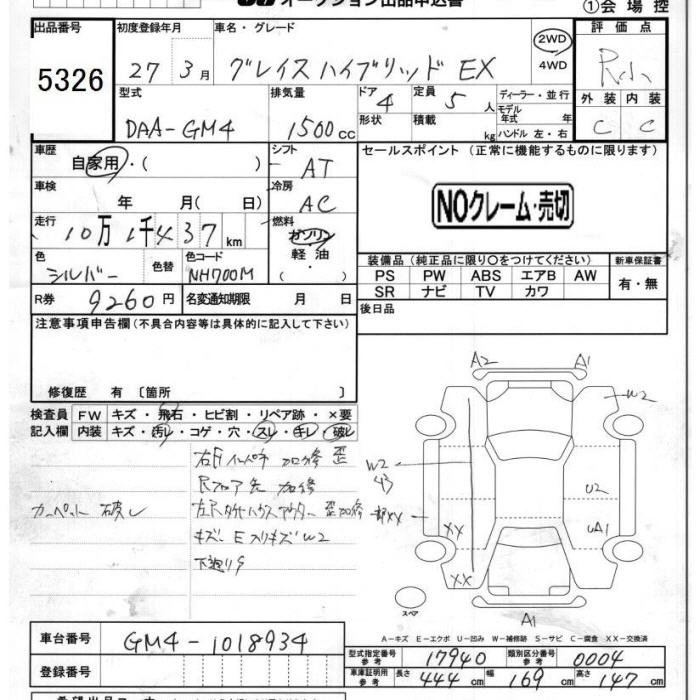 オークション出品申込書
①会場控
出品番号 初度登録年月 車名・グレード 評価点
5326 27年 3月 グレイスハイブリッド EX 2WD 4WD R小
型式 排気量 ドア 定員 ディーラー・並行 外装 内装
DAA-GM4 1500cc 4 5人 モデル年式 年 C C
形状 積載 kg ハンドル 左・右
車歴 シフト セールスポイント (正常に機能するものに限ります)
自家用・( ) AT
車検 冷房
年 月( 日) AC
NOクレーム・売切
走行 燃料
10万1千437km ガソリン 軽油 ( ・ )
色 色替 色コード
シルバー NH700M
装備品 (純正品に限り○をつけてください) 新車保証書
PS PW ABS エアB AW 有・無
SR ナビ TV カワ
R券 9260円 名変通知期限 月 日
後日品
注意事項申告欄 (不具合内容等は具体的に記入して下さい)
修復歴 有 〔箇所 〕
検査員 FW キズ・飛石・ヒビ割・リペア跡・×要
記入欄 内装 キズ・汚レ・コゲ・穴・スレ・キレ・破レ
加修 歪
加修
カーペット 破レ
歪加修
W2
A2 A1
W2
W2
43
U2
XX UA1
XX
スペア
A1
A-キズ E-エクボ U-凹み W-補修跡 S-サビ C-腐食 XX-交換済
車台番号 GM4-1018934
登録番号
型式指定番号 参考 17940 類別区分番号 参考 0004
車庫証明用 参考 長さ 444cm 幅 169cm 高さ 147cm